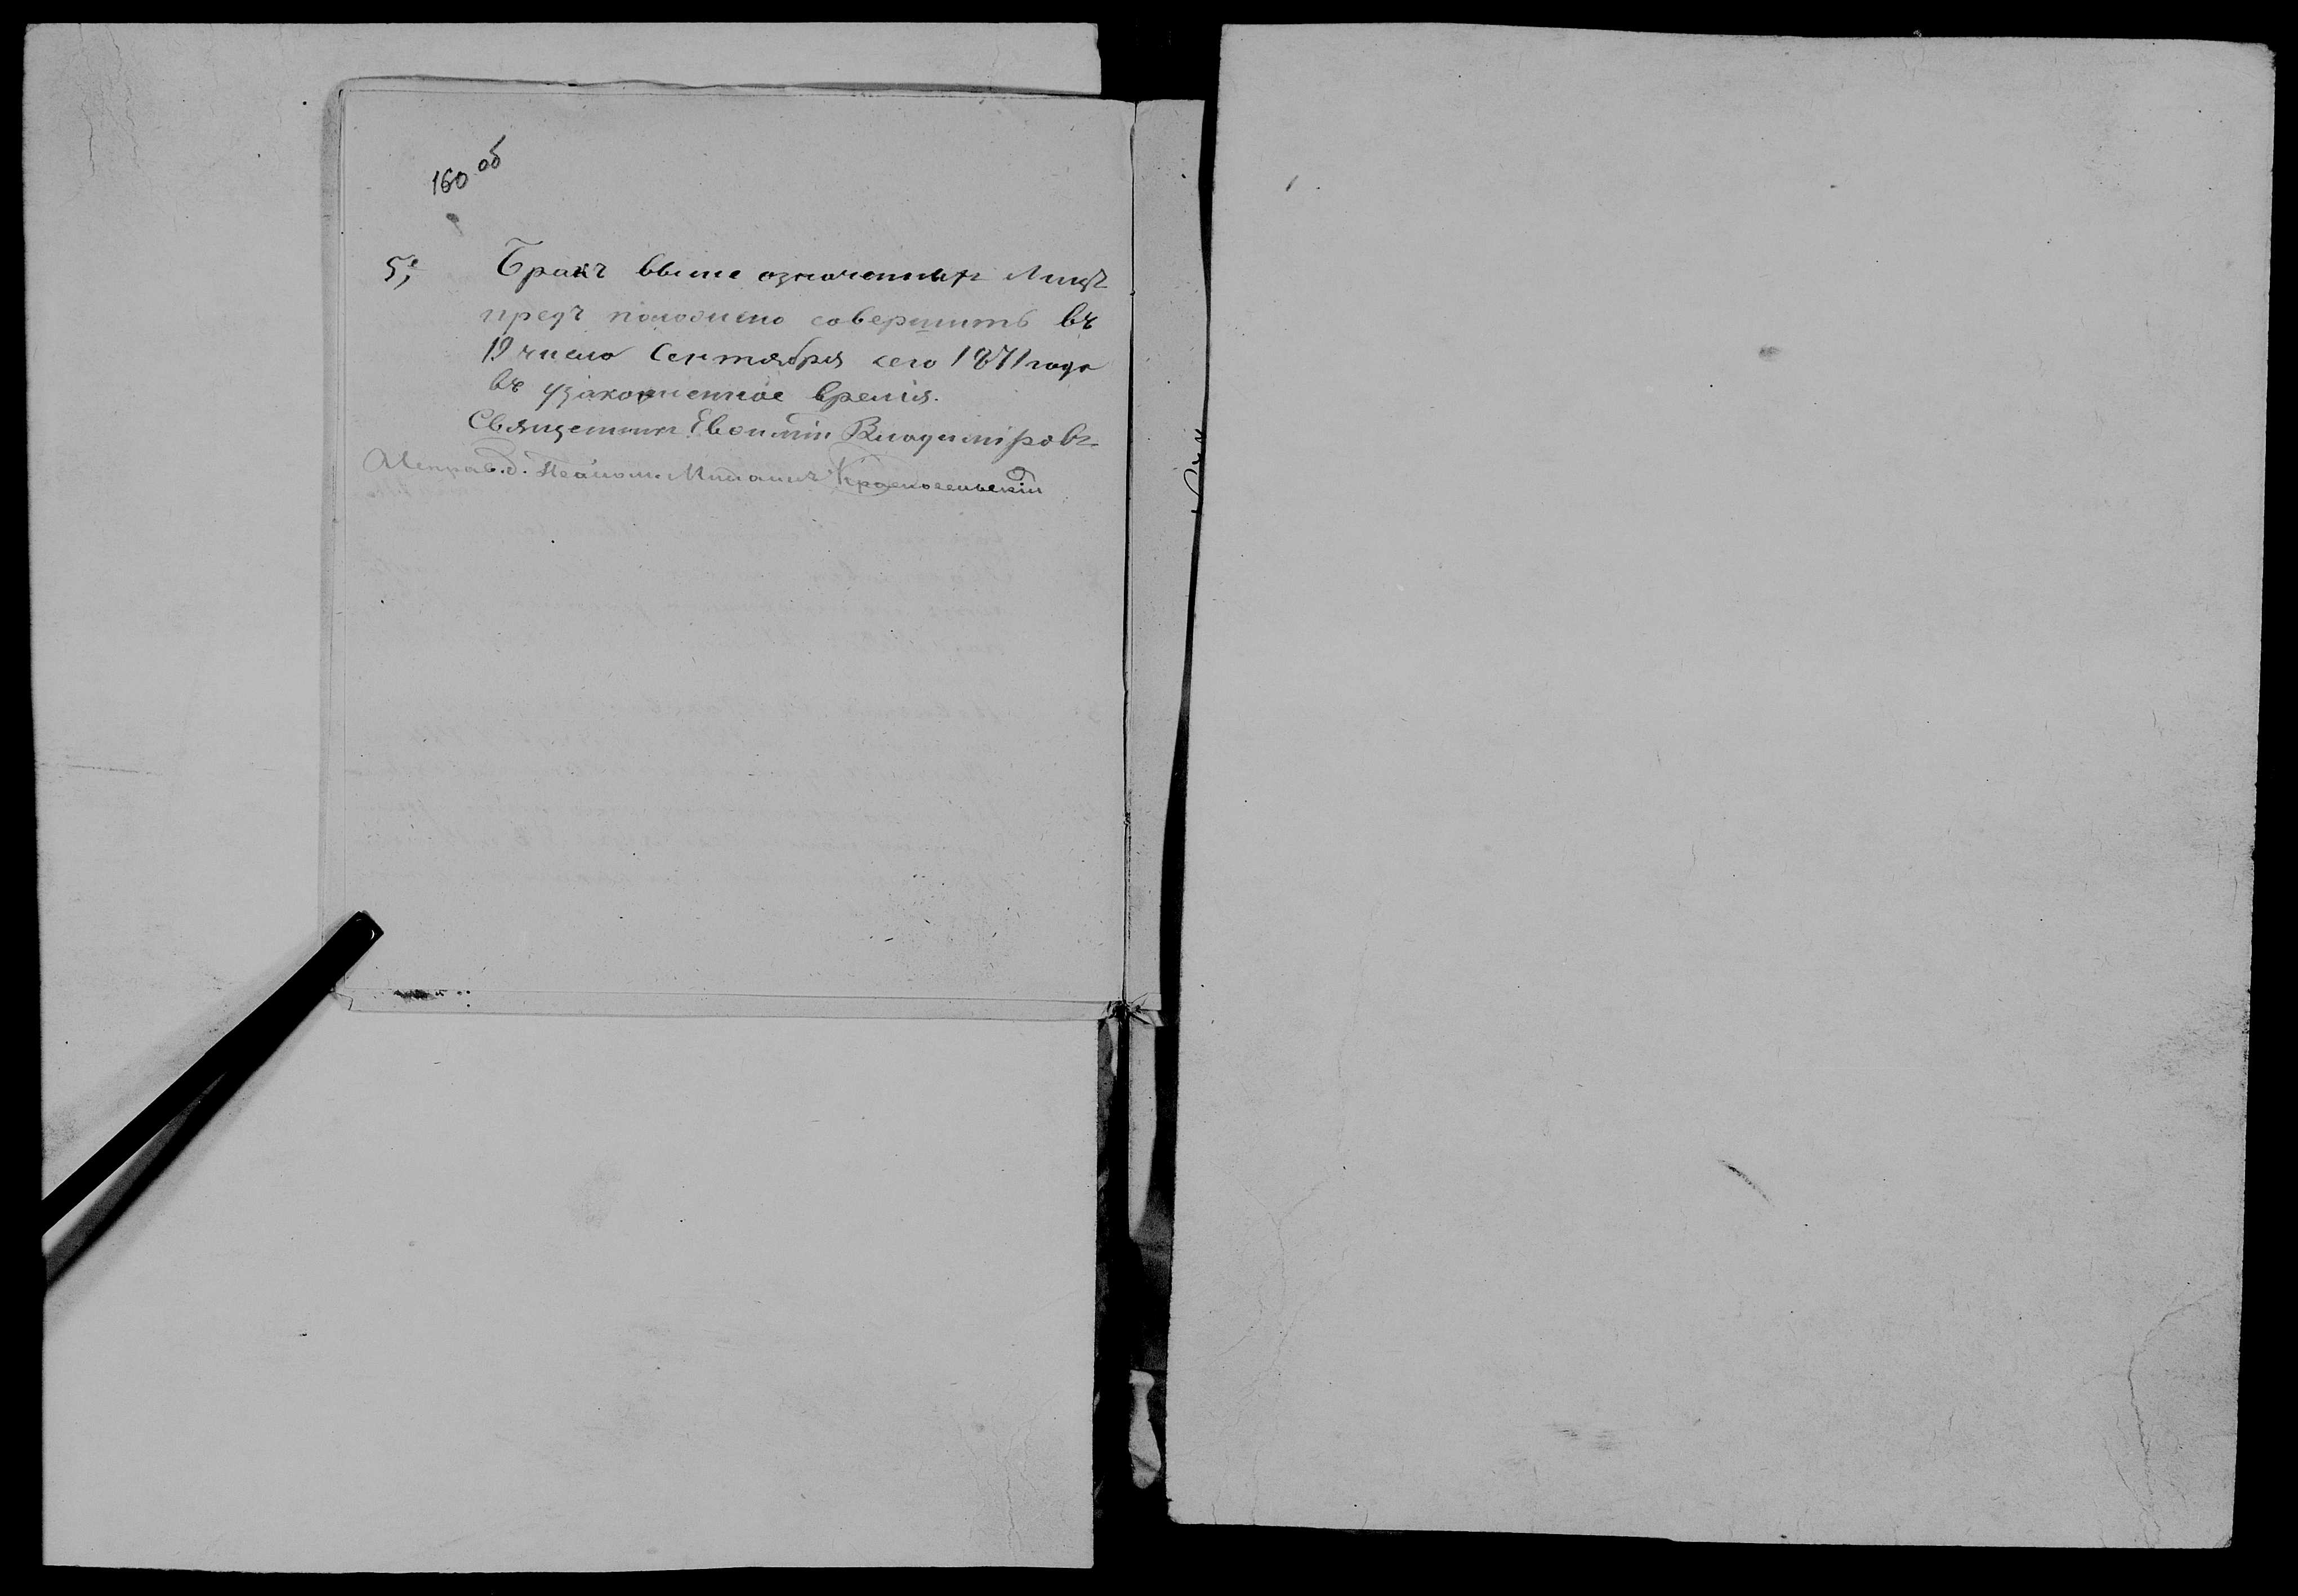 160 об
5е, Бракъ выше означенныхъ Лицъ
предъ положено совершить въ
19 число Сентября сего 1871 года
въ узаконенное время.
Священникъ Евѳимій Владиміровъ
Исправ. д. Псалом. Михаилъ Красносельскій